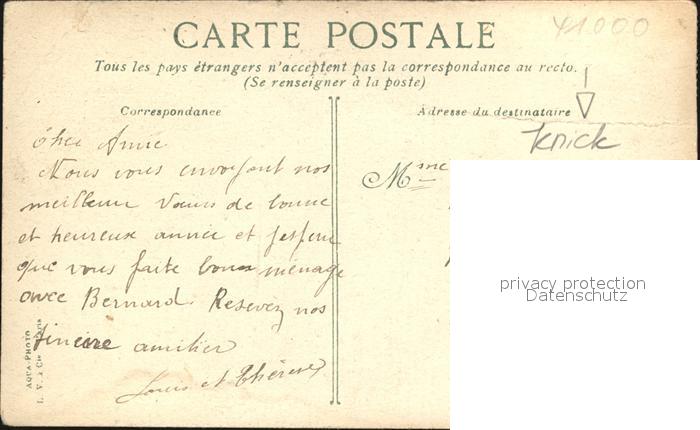 41000
CARTE POSTALE
Tous les pays étrangers n'acceptent pas la correspondance au recto.
(Se renseigner à la poste)
Correspondance
Adresse du destinataire
Knick
Mme
Chee Amie
Nous vous envoyont nos
meilleur Vœux de bonne
et heureux année et j'espère
que vous faite bon ménage
avec Bernard. Resevez nos
sincère amitier
Louis et Thérèse
privacy protection
Datenschutz
AQUA-PHOTO
L. V. & Cie Paris